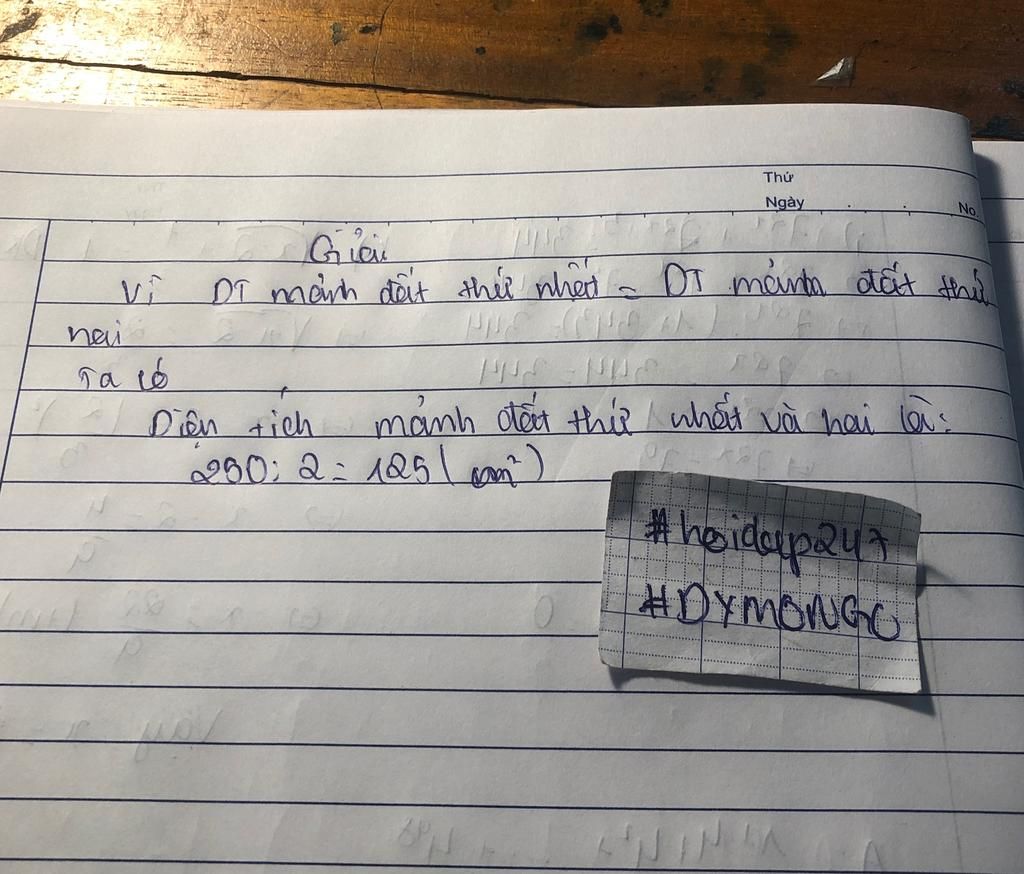 Thứ
Ngày
No.
Giải
Vì DT mảnh đất thứ nhất = DT mảnh đất thứ
hai
Ta có
Diện tích mảnh đất thứ nhất và hai là:
250 : 2 = 125 ( m²)
#hoidap247
#DYMONGO